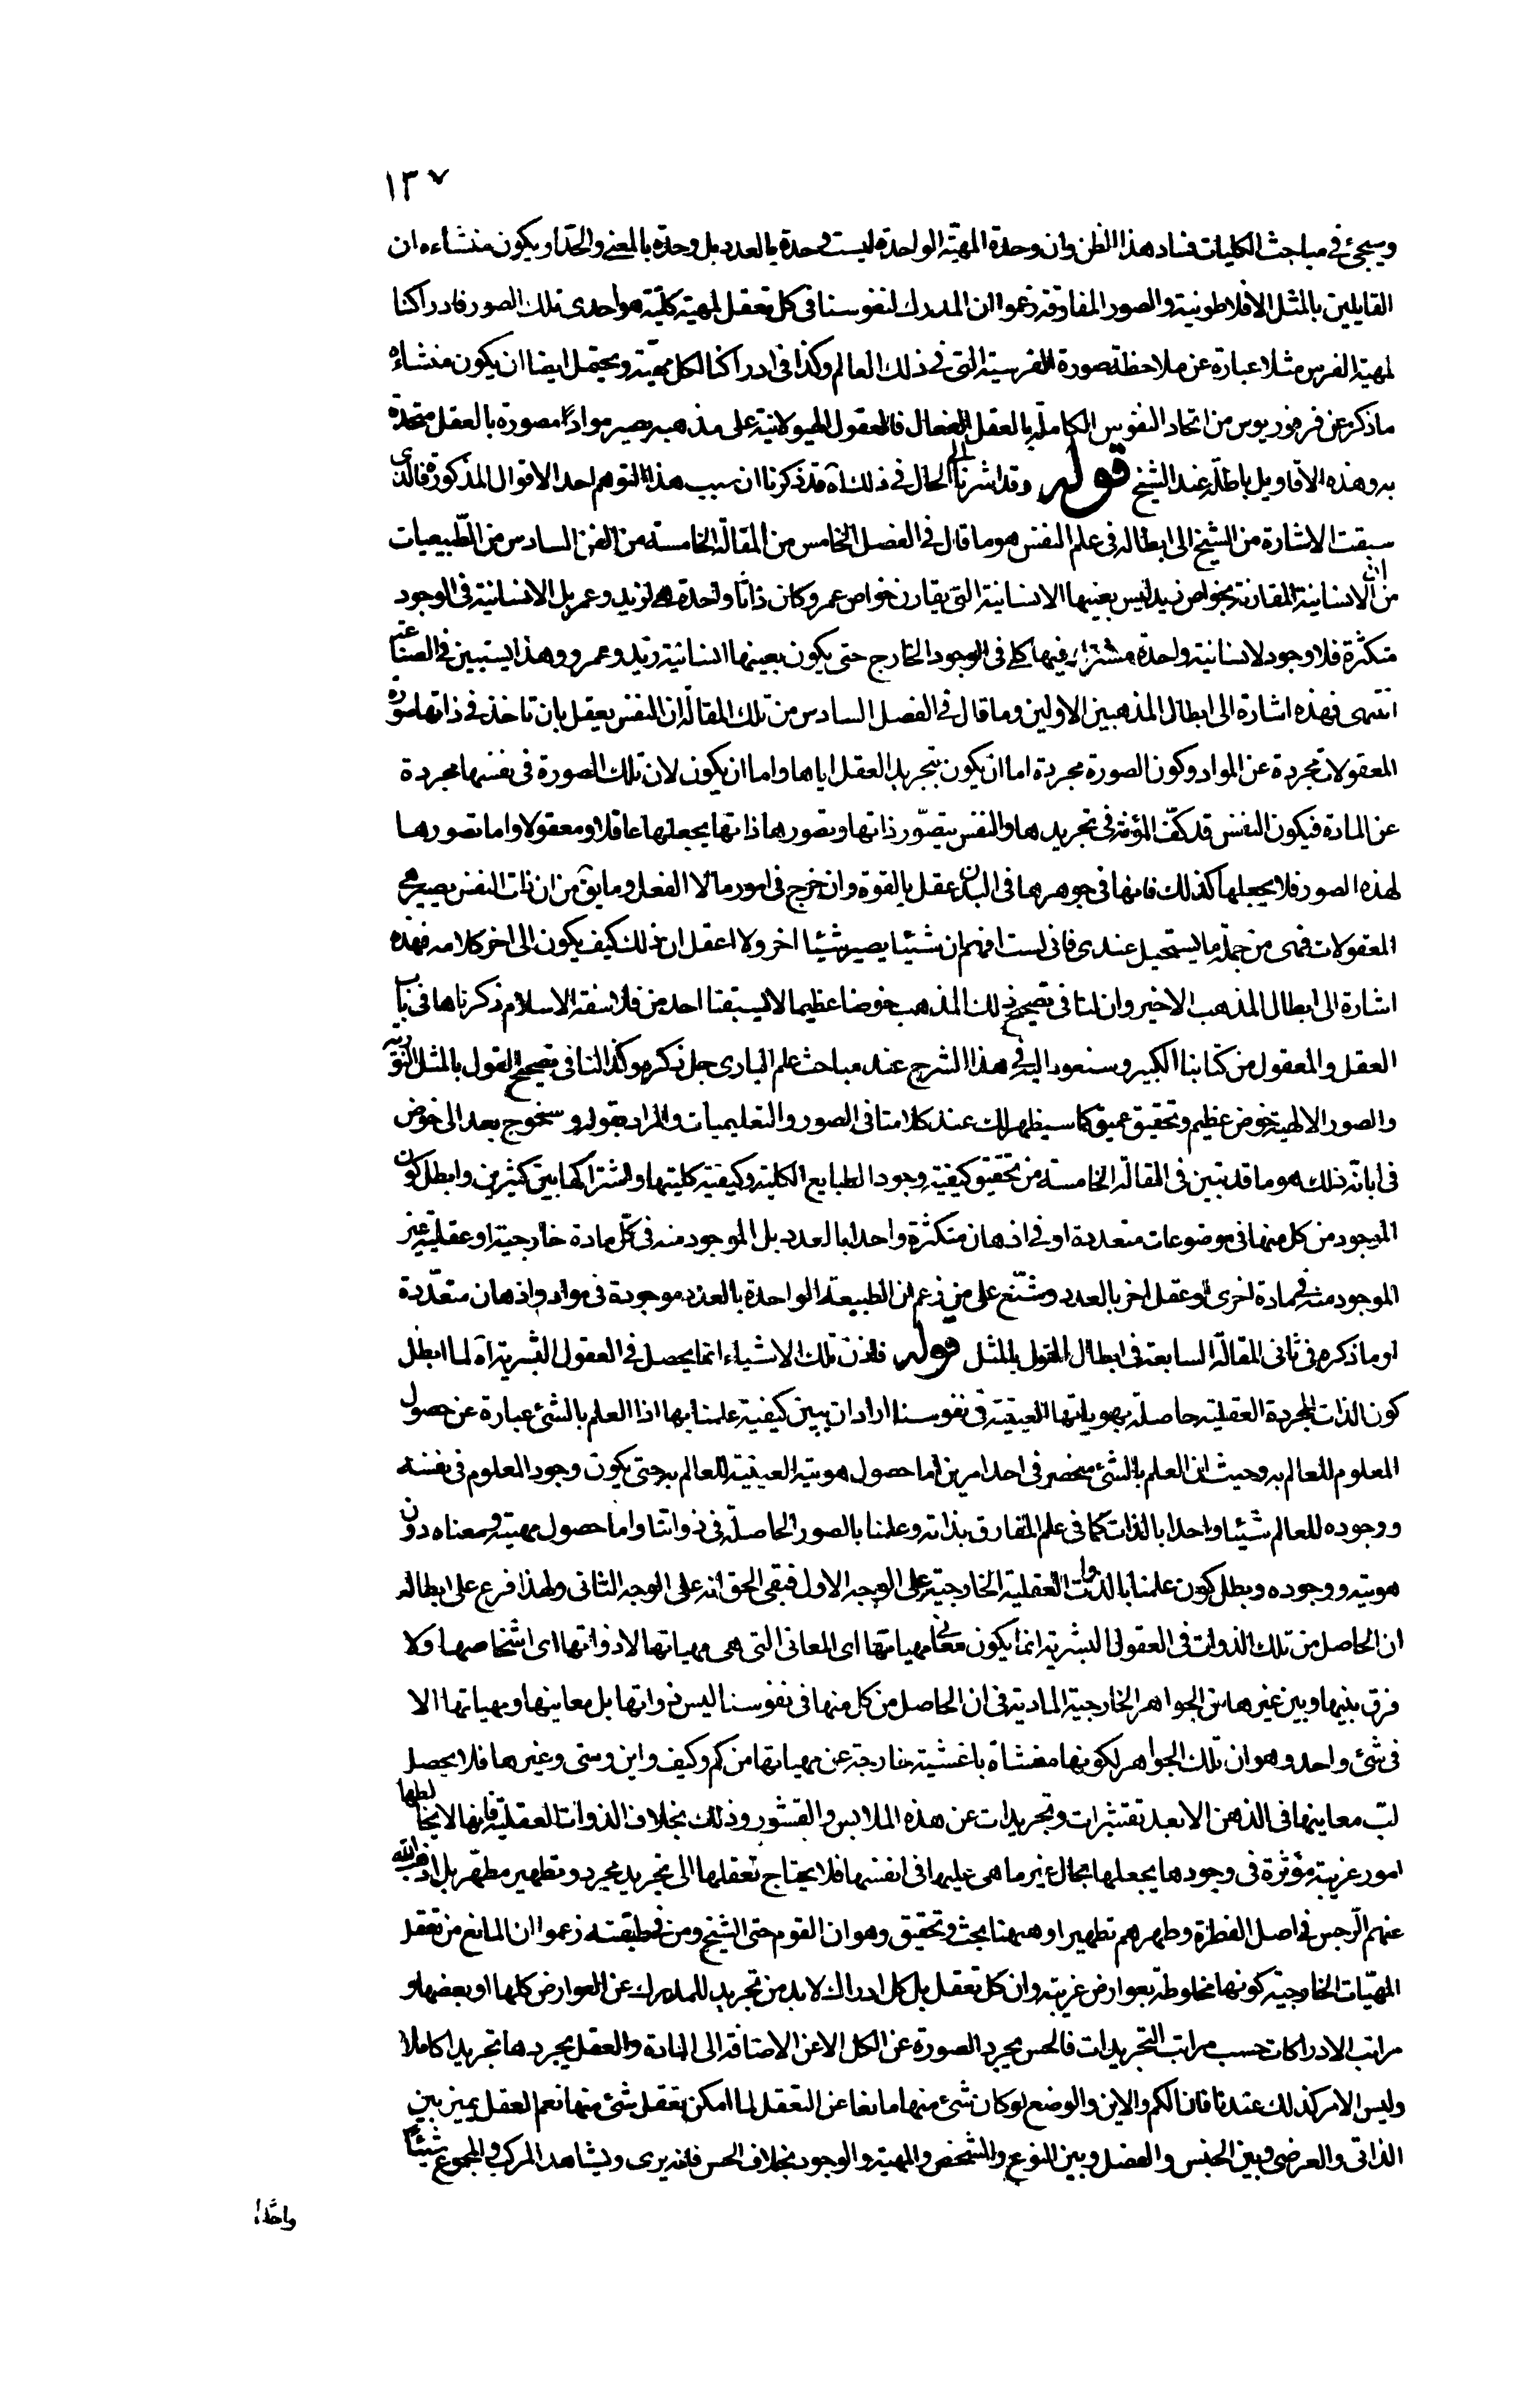 ١٣٧
وسيجئ في مباحث الكليات فساد هذا الظن وان وحدة المهيّة الواحدة ليست وحدة بالعدد بل وحدة بالمعنى والحد او يكون منشاءه ان
القايلين بالمثل الافلاطونية والصور المفارقة زعموا ان المدرك لنفوسنا في كل تعقل لمهية كليّة هو احدى تلك الصور فادراكنا
لمهية الفرس مثلا عبارة عن ملاحظة صورة الفرسية التي في ذلك العالم وكذا في ادراكنا لكل مهيّة ويحتمل ايضا ان يكون منشاءه
ما ذكره عن فرفوريوس من اتحاد النفوس الكاملة بالعقل الفعال فالعقول الهيولانية على مذهبه يصير موادّا مصورة بالعقل متحدة
به وهذه الاقاويل باطلة عند الشيخ قوله وقد اشرنا الى الحال في ذلك آه قد ذكرنا ان سبب هذا التوهم احد الاقوال المذكورة فالذى
سبقت الاشارة من الشيخ الى ابطاله في علم النفس هو ما قال في الفصل الخامس من المقالة الخامسة من الفن السادس من الطبيعيات
من ان الانسانية المقارنة بخواص زيد ليس بعينها الانسانية التي يقارن خواص عمرو كان ذاتا واحدة هي لزيد وعمر بل الانسانية في الوجود
متكثرة فلا وجود لانسانية واحدة مشترك فيها كلي في الوجود الخارج حتى يكون بعينها انسانية زيد وعمرو وهذا يستبين في الصناعة
انتهى فهذه اشارة الى ابطال المذهبين الاولين وما قال في الفصل السادس من تلك المقالة ان النفس يعقل بان تاخذ في ذاتها صورة
المعقولات مجردة عن المواد وكون الصورة مجردة اما ان يكون بتجريد العقل اياها واما ان يكون لان تلك الصورة في نفسها مجردة
عن المادة فيكون النفس قد كفّ المؤنة في تجريدها والنفس يتصوّر ذاتها وتصورها ذاتها يجعلها عاقلا ومعقولا واما تصورها
لهذه الصور فلا يجعلها كذلك فانها في جوهرها في البدن عقل بالقوة وان خرج في امور ما الى الفعل وما يق من ان ذات النفس يصير هي
المعقولات فهى من جملة ما يستحيل عندى فانى لست افهم ان شيئا يصير شيئا اخر ولا اعقل ان ذلك كيف يكون الى اخر كلامه فهذه
اشارة الى ابطال المذهب الاخير وان لنا في تصحيح ذلك المذهب خوضا عظيما لا يسبقنا احد من فلاسفة الاسلام ذكرناها في باب
العقل والمعقول من كتابنا الكبير وسنعود اليه في هذا الشرح عند مباحث علم البارى جل ذكره وكذا لنا في تصحيح القول بالمثل النورية
والصور الالهية خوض عظيم وتحقيق عميق كما سيظهر لك عند كلامنا في الصور والتعليميات والمراد بقوله وسنحوج بعد الى خوض
في ابانة ذلك هو ما قد تبين في المقالة الخامسة من تحقيق كيفية وجود الطبايع الكلية وكيفية كليتها واشتراكها بين كثيرين وابطل كون
الموجود من كل منها في موضوعات متعددة او في اذهان متكثرة واحدا بالعدد بل الموجود منه في كل مادة خارجية او عقلية غير
الموجود منه في مادة اخرى او عقل اخر بالعدد وشنّع على من زعم ان الطبيعة الواحدة بالعدد موجودة في مواد واذهان متعدّدة
او ما ذكره في ثاني المقالة السابعة في ابطال القول بالمثل قوله فاذن تلك الاشياء انما يحصل في العقول البشرية آه لما ابطل
كون الذات المجردة العقلية حاصلة بهوياتها العينية في نفوسنا اراد ان يبين كيفية علمنا بها اذا العلم بالشئ عبارة عن حصول
المعلوم للعالم به وحيث ان العلم بالشئ منحصر في احد امرين اما حصول هويته العينية للعالم به حتى يكون وجود المعلوم في نفسه
ووجوده للعالم شيئا واحدا بالذات كما في علم المفارق بذاته وعلمنا بالصور الحاصلة في ذواتنا واما حصول مهيته ومعناه دون
هويته ووجوده وبطل كون علمنا بالذوات العقلية الخارجية على الوجه الاول فبقى الحق انه على الوجه الثاني ولهذا فرع على ابطاله
ان الحاصل من تلك الذوات في العقول البشرية انما يكون معاني مهياتها اى المعانى التي هي مهياتها لا ذواتها اى اشخاصها ولا
فرق بينها وبين غيرها من الجواهر الخارجية المادية في ان الحاصل من كل منها في نفوسنا ليس ذواتها بل معاينها ومهياتها الا
في شئ واحد وهو ان تلك الجواهر لكونها مغشاة باغشية خارجة عن مهياتها من كم وكيف واين ومتى وغيرها فلا يحصل
لبّ معاينها في الذهن الا بعد تقشيرات وتجريدات عن هذه الملابس والقشور وذلك بخلاف الذوات العقلية فانها لا يخالطها
امور غريبة مؤثرة في وجودها يجعلها بحال غير ما هي عليها في انفسها فلا يحتاج تعقلها الى تجريد مجرد وتطهير مطهّر بل اذهب الله
عنهم الرّجس في اصل الفطرة وطهرهم تطهيرا وههنا بحث وتحقيق وهو ان القوم حتى الشيخ ومن في طبقته زعموا ان المانع من تعقل
المهيّات الخارجية كونها مخلوطة بعوارض غريبة وان كل تعقل بل كل ادراك لا بد من تجريد للمدرك عن العوارض كلها او بعضها و
مراتب الادراكات حسب مراتب التجريدات فالحس يجرد الصورة عن الكل الا عن الاضافة الى المادة والعقل يجردها تجريدا كاملا
وليس الامر كذلك عندنا فان الكم والاين والوضع لو كان شئ منها مانعا عن التعقل لما امكن تعقل شئ منها نعم العقل يميز بين
الذاتى والعرضى وبين الجنس والفصل وبين النوع والشخص والمهية والوجود بخلاف الحس فانه يرى ويشاهد المركب والمجموع شيئا
واحدا